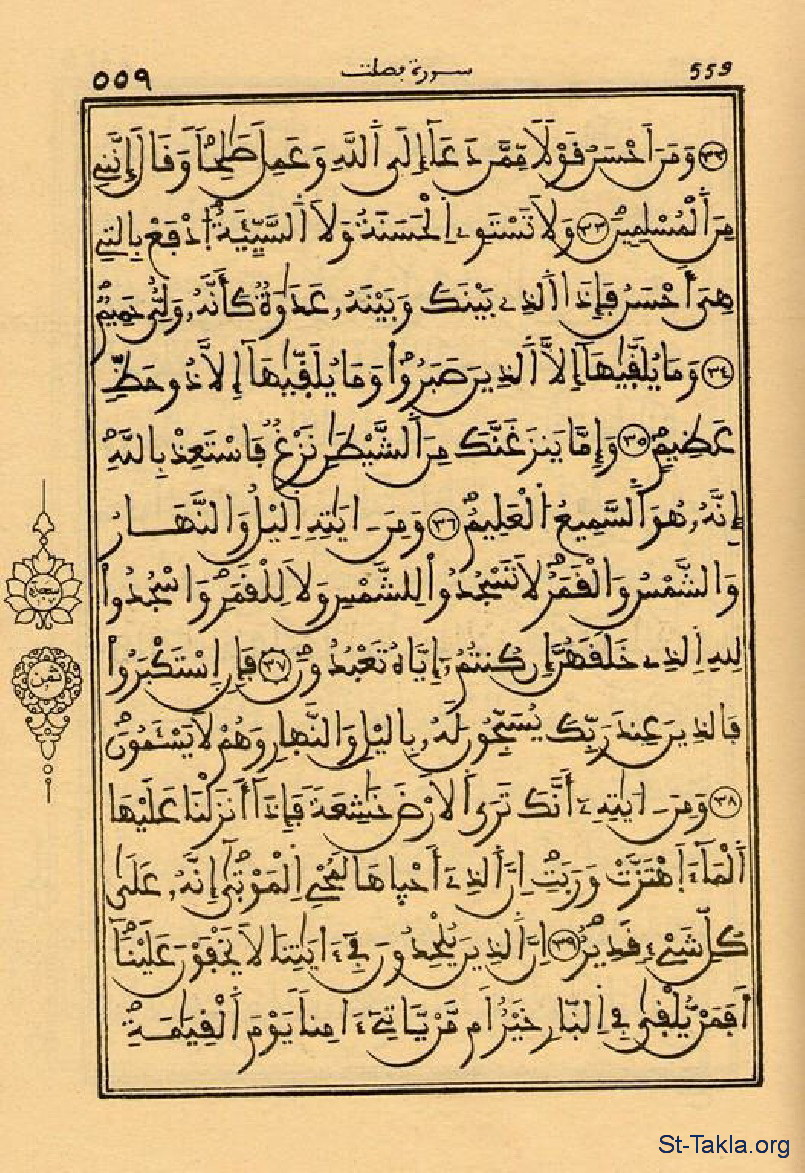 559 سورة فصلت ٥٥٩
٣٢ وَمَنَ اَحْسَنُ قَوْلًا مِّمَّن دَعَآ إِلَى اَللَّهِ وَعَمِلَ صَٰلِحًا وَقَالَ إِنَّنِے
مِنَ اَلْمُسْلِمِينَ ٣٣ وَلَا تَسْتَوِے اِلْحَسَنَةُ وَلَا اَلسَّيِّئَةُ اُ۪دْفَعْ بِالتِے
هِيَ أَحْسَنُ فَإِذَا اَلذِے بَيْنَكَ وَبَيْنَهُۥ عَدَٰوَةٌ كَأَنَّهُۥ وَلِيٌّ حَمِيمٌ
٣٤ وَمَا يُلَقَّيٰهَآ إِلَّا اَلذِينَ صَبَرُواْ وَمَا يُلَقَّيٰهَآ إِلَّا ذُو حَظٍّ
عَظِيمٍ ٣٥ وَإِمَّا يَنزَغَنَّكَ مِنَ اَلشَّيْطَٰنِ نَزْغٌ فَاسْتَعِذْ بِاللَّهِ
إِنَّهُۥ هُوَ اَلسَّمِيعُ اُلْعَلِيمُ ٣٦ وَمِنَ اٰيَٰتِهِ اِليْلُ وَالنَّهَارُ
وَالشَّمْسُ وَالْقَمَرُ لَا تَسْجُدُواْ لِلشَّمْسِ وَلَا لِلْقَمَرِ وَاسْجُدُواْ
لِلهِ اِلذِے خَلَقَهُنَّ إِن كُنتُمُۥٓ إِيَّاهُ تَعْبُدُونَ ٣٧ فَإِنِ اِسْتَكْبَرُواْ
فَالذِينَ عِندَ رَبِّكَ يُسَبِّحُونَ لَهُۥ بِاليْلِ وَالنَّهارِ وَهُمْ لَا يَسْـَٔمُونَ
٣٨ وَمِنَ اٰيَٰتِهِۦٓ أَنَّكَ تَرَى اَلَارْضَ خَٰشِعَةً فَإِذَآ أَنزَلْنَا عَلَيْهَا
اَلْمَآءَ اَهْتَزَّتْ وَرَبَتِ اِنَّ اَلذِےٓ أَحْيَاهَا لَمُحْيِ اِلْمَوْتٰىٓ إِنَّهُۥ عَلَىٰ
كُلِّ شَےْءٍ قَدِيرٌ ٣٩ اِنَّ اَلذِينَ يُلْحِدُونَ فِےٓ ءَايَٰتِنَا لَا يَخْفَوْنَ عَلَيْنَآ
أَفَمَنْ يُّلْقٰى فِے اِلنّارِ خَيْرٌ اَم مَّنْ يَّاتِےٓ ءَامِناً يَوْمَ اَلْقِيَٰمَةِ
سجدة
ثمن
St-Takla.org